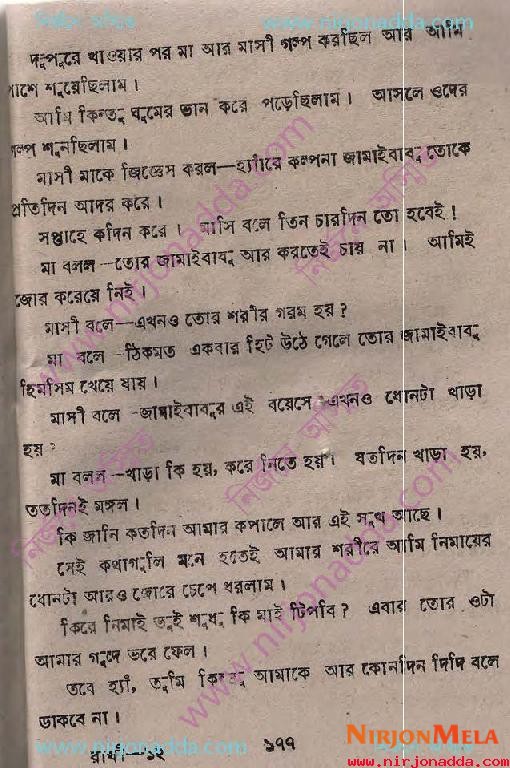 www.nirjonadda.com
দুপুরে খাওয়ার পর মা আর মাসী গল্প করছিল আর আমি
পাশে শুয়েছিলাম।
আমি কিন্তু ঘুমের ভান করে পড়েছিলাম। আসলে ওদের
গল্প শুনছিলাম।
মাসী মাকে জিজ্ঞেস করল—হ্যাঁরে কল্পনা জামাইবাবু তোকে
প্রতিদিন আদর করে।
সপ্তাহে কদিন করে। মাসি বলে তিন চারদিন তো হবেই!
মা বলল—তোর জামাইবাবু আর করতেই চায় না। আমিই
জোর করেরে নিই।
মাসী বলে—এখনও তোর শরীর গরম হয়?
মা বলে—ঠিকমত একবার হিট উঠে গেলে তোর জামাইবাবু
হিমসিম খেয়ে যায়।
মাসী বলে—জামাইবাবুর এই বয়েসে এখনও ধোনটা খাড়া
হয়?
মা বলল—খাড়া কি হয়, করে নিতে হয়। যতদিন খাড়া হয়,
ততদিনই মঙ্গল।
কি জানি কতদিন আমার কপালে আর এই সুখ আছে।
সেই কথাগুলি মনে হতেই আমার শরীরে আমি নিমায়ের
ধোনটা আরও জোরে চেপে ধরলাম।
কিরে নিমাই তুই শুধু কি মাই টিপবি? এবার তোর ওটা
আমার গুদে ভরে ফেল।
তবে হ্যাঁ, তুমি কিন্তু আমাকে আর কোনদিন দিদি বলে
ডাকবে না।
১৭৭
www.nirjonadda.com
নির্জনে অস্মিত
NIRJONMELA
www.nirjonadda.com